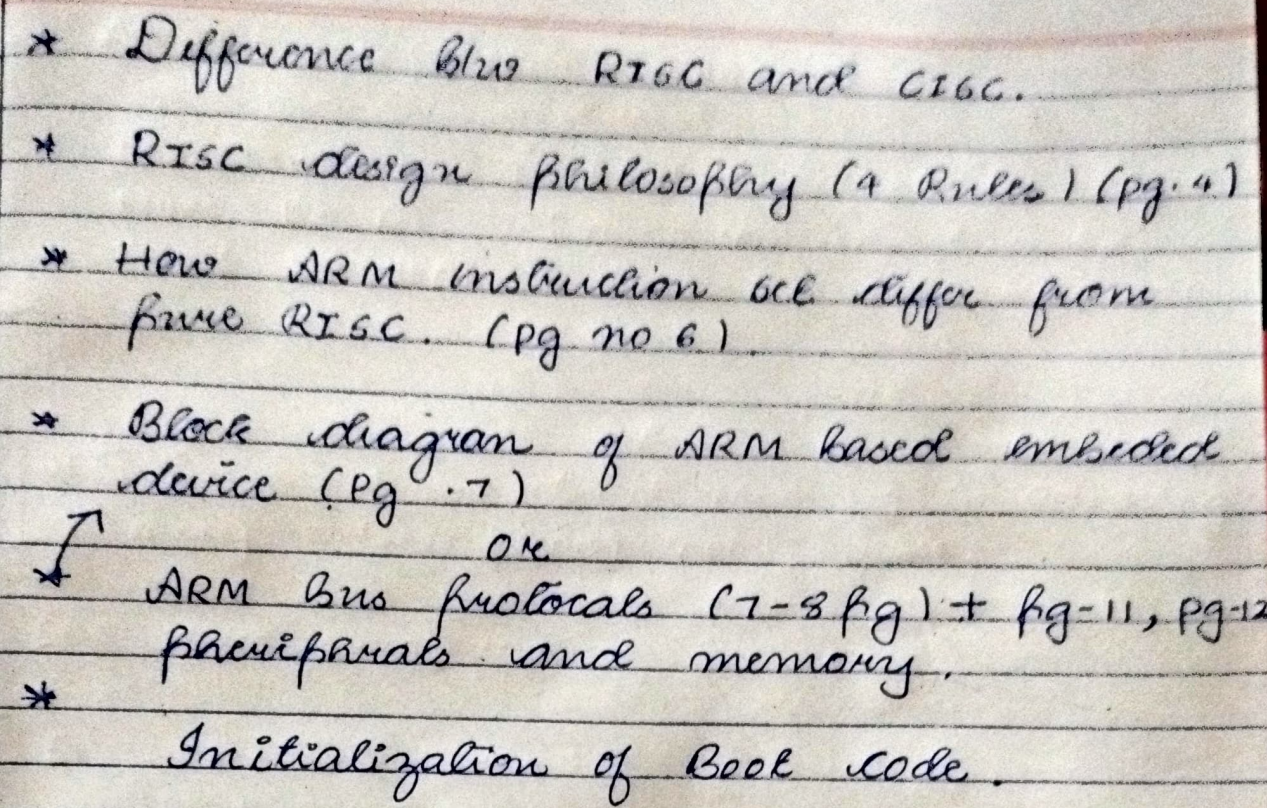 * Difference B/w RISC and CISC.
* RISC design philosophy (4 Rules) (pg. 4)
* How ARM instruction set differ from
pure RISC. (pg no 6)
* Block diagran of ARM Based embeded
device (Pg .7)
OR
* ARM Bus protocals (7-8 pg) + pg-11, pg-12
pheripherals and memory.
*
Initialization of Boot code.